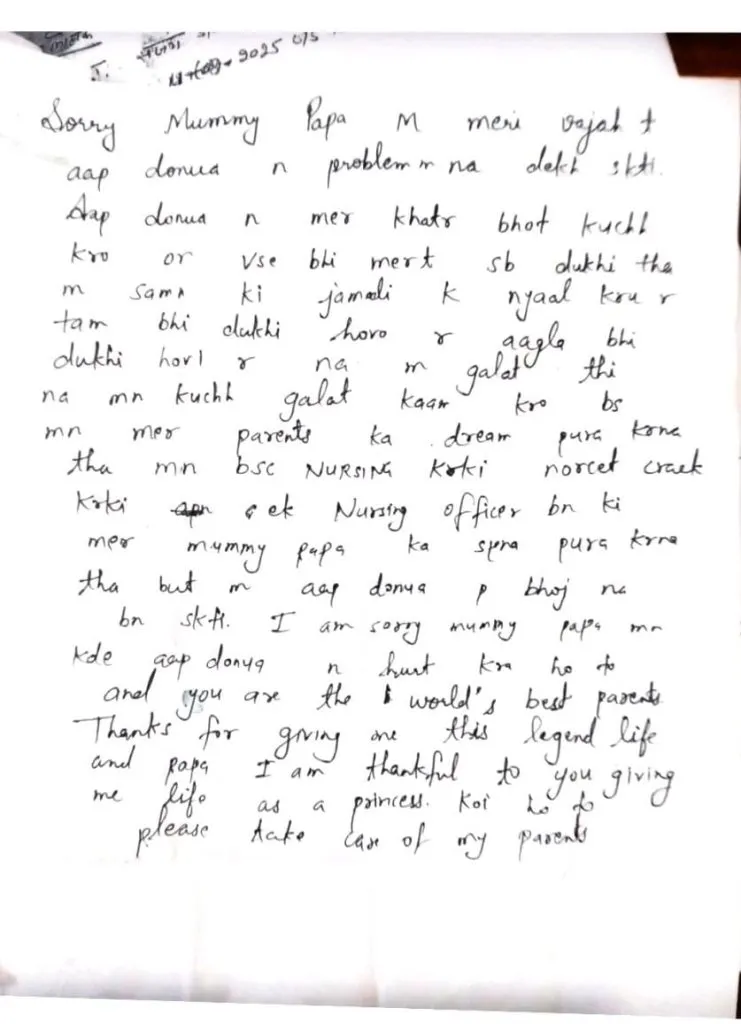 2025
Sorry Mummy Papa M meri vajah t
aap donua n problem m na dekh skti.
Aap donua n mer khatr bhot kuchh
kro or vse bhi mert sb dukhi the
m sama ki jamali k nyaal kru r
tam bhi dukhi horo r aagla bhi
dukhi horl r na m galat thi
na mn kuchh galat kaam kro bs
mn mer parents ka dream pura krna
tha mn bsc NURSING krki norcet crack
krki ek Nursing officer bn ki
mer mummy papa ka spna pura krna
tha but m aap donya p bhoj na
bn skti. I am sorry mummy papa mn
kde aap donya n hurt kra ho to
and you are the world's best parents
Thanks for giving me this legend life
and papa I am thankful to you giving
me life as a princess. Koi ho to
please take care of my parents